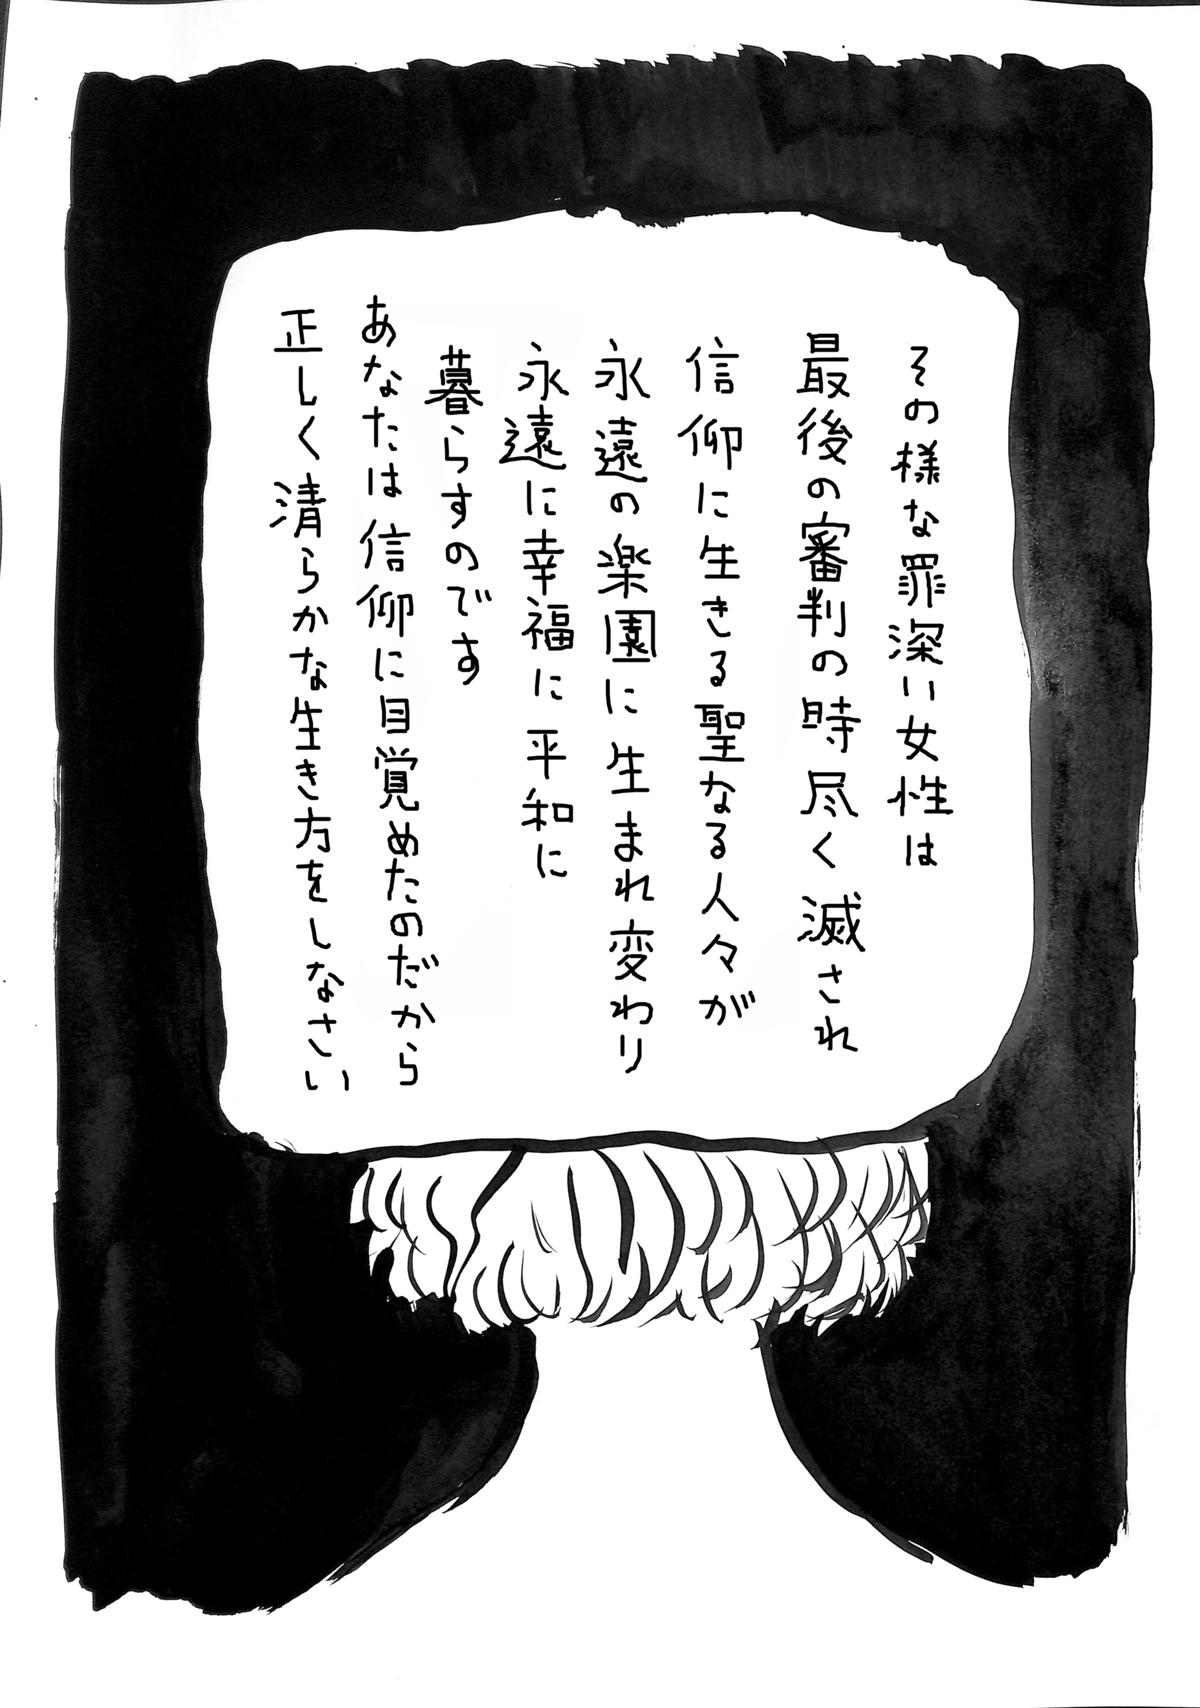 その様な罪深い女性は
最後の審判の時尽く滅され
信仰に生きる聖なる人々が
永遠の楽園に生まれ変わり
永遠に幸福に平和に
暮らすのです
あなたは信仰に目覚めたのだから
正しく清らかな生き方をしなさい